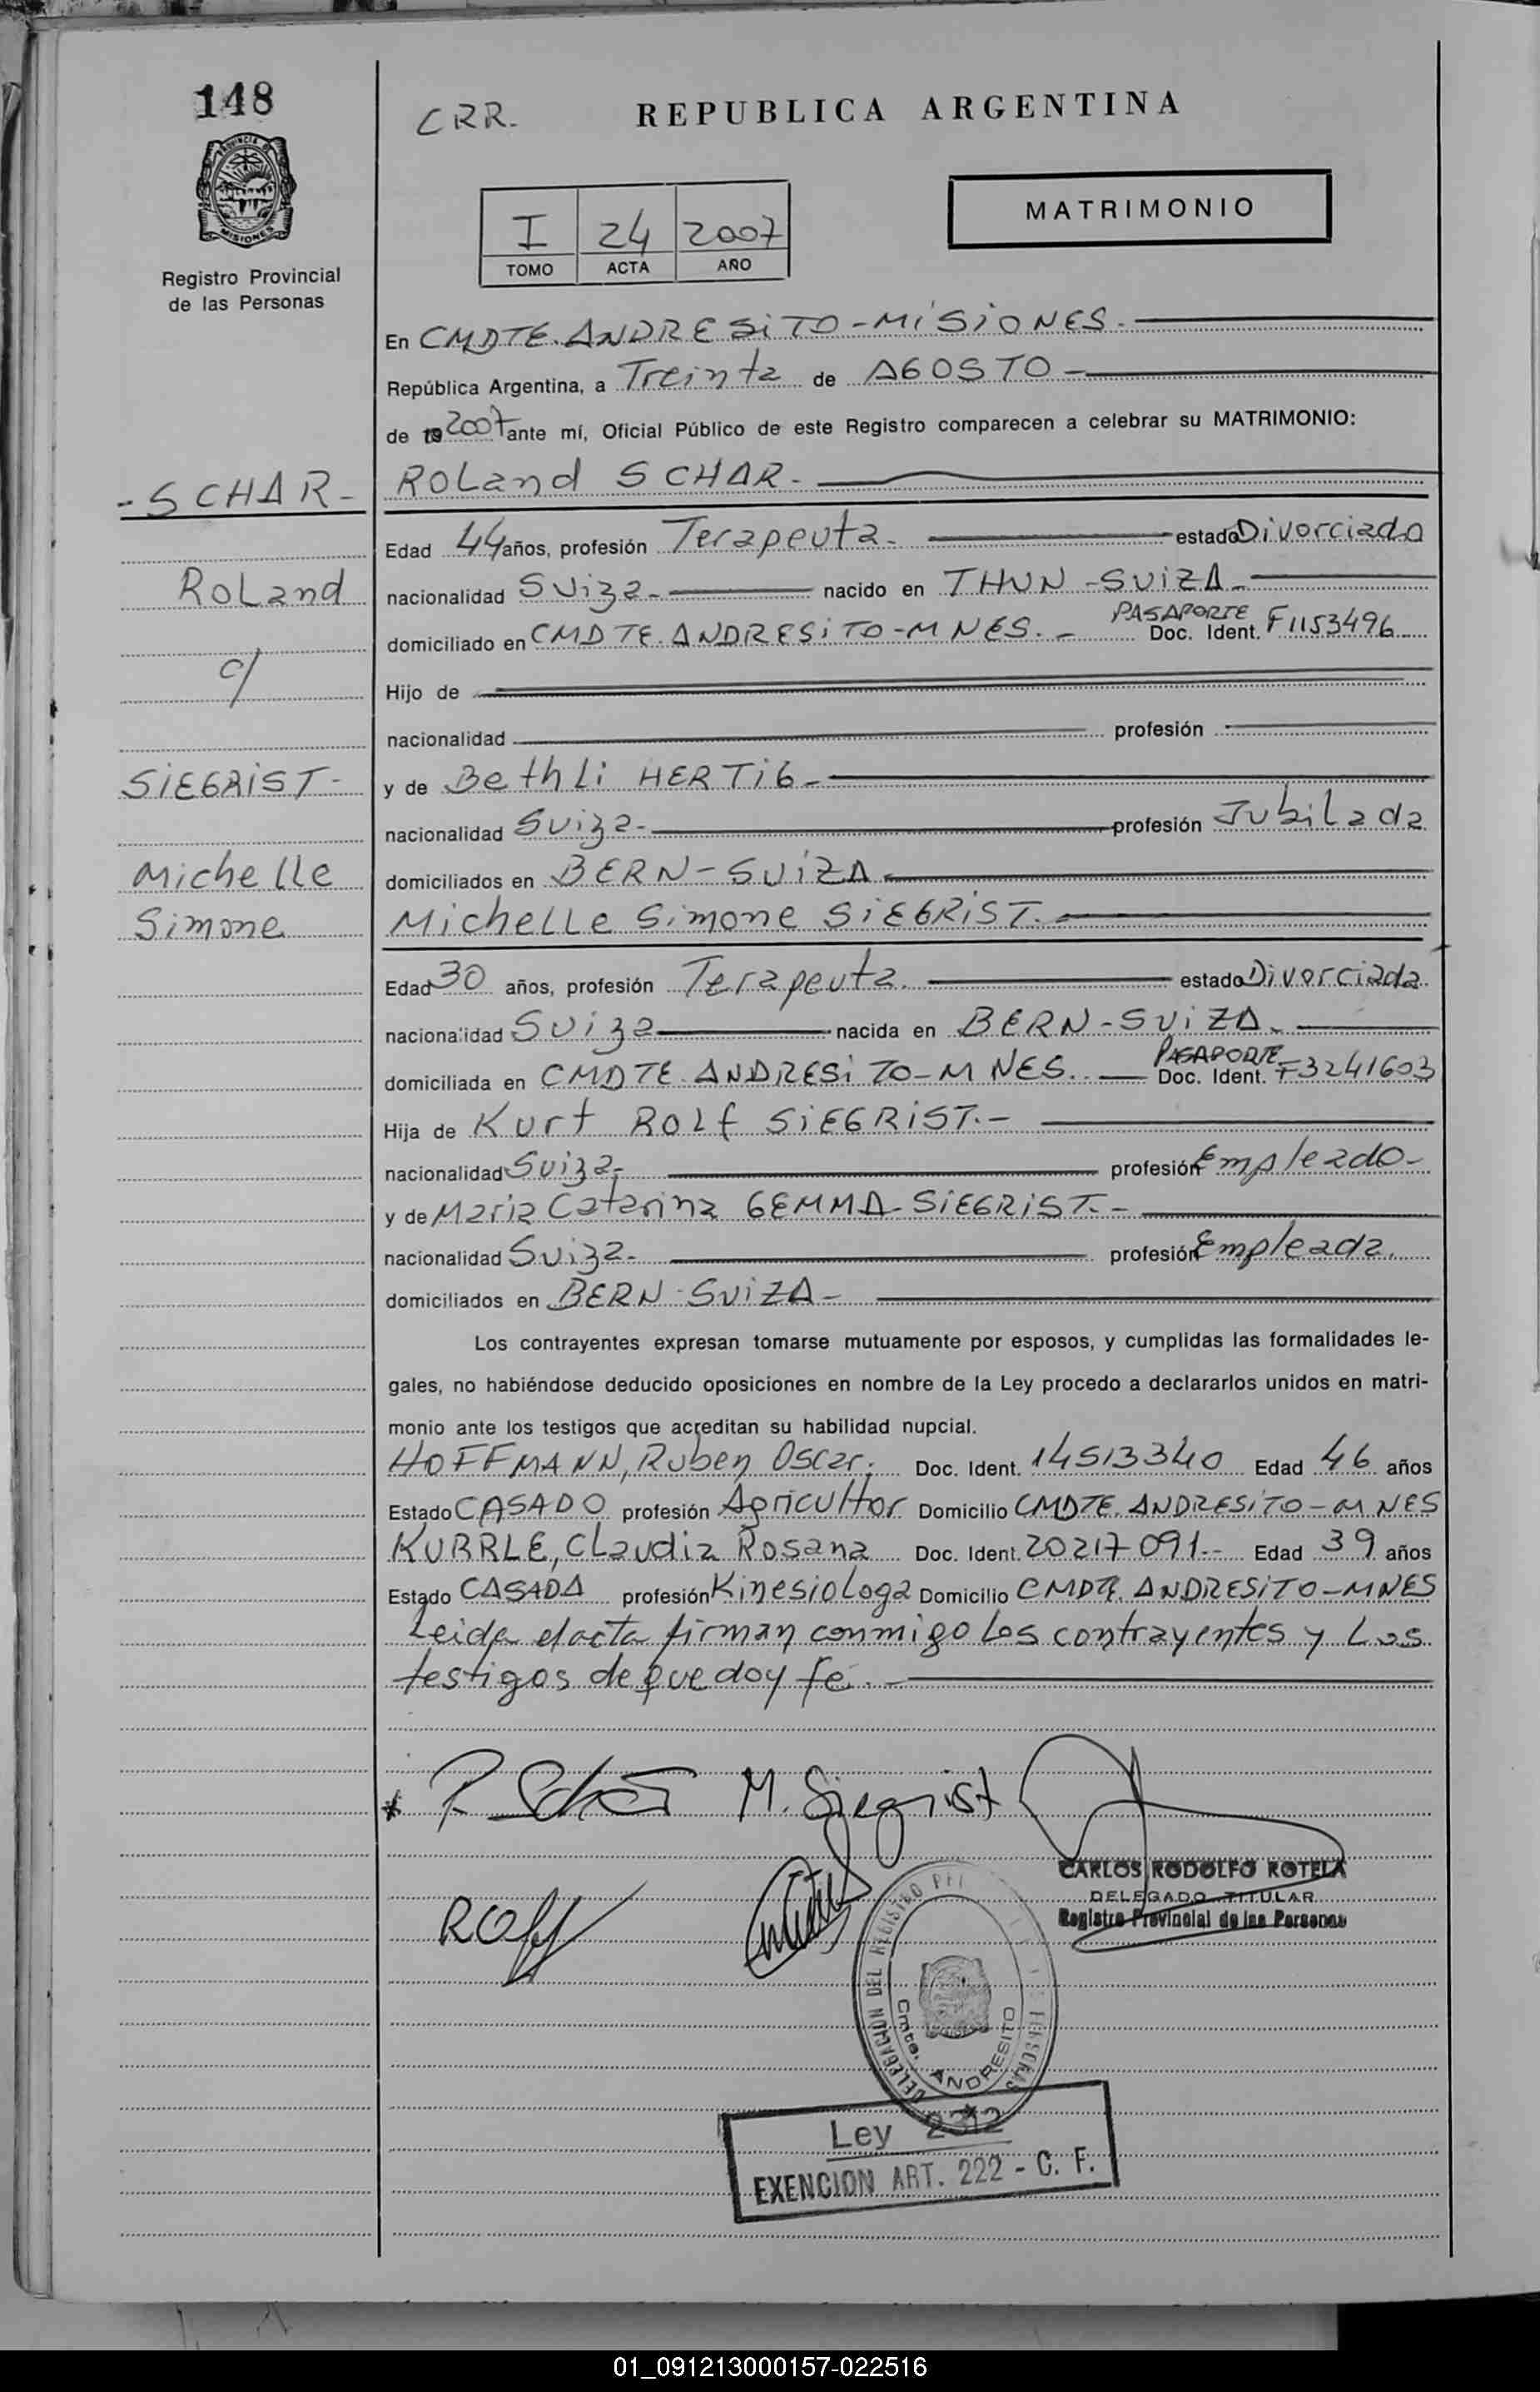 148
CRR.
REPUBLICA ARGENTINA
PROVINCIA DE MISIONES
Registro Provincial
de las Personas
I 24 2007
TOMO ACTA AÑO
MATRIMONIO
En CMDTE. ANDRESITO - MISIONES.
República Argentina, a Treinta de AGOSTO -
de 19 2007 ante mí, Oficial Público de este Registro comparecen a celebrar su MATRIMONIO:
- SCHAR -
Roland SCHAR.
Edad 44 años, profesión Terapeuta. estado Divorciado
Roland
nacionalidad Suiza - nacido en THUN - SUIZA -
domiciliado en CMDTE. ANDRESITO - MNES. - PASAPORTE Doc. Ident. F1153496
c/
Hijo de
nacionalidad profesión
SIEGRIST -
y de Bethli HERTIG -
nacionalidad Suiza - profesión Jubilada
Michelle
domiciliados en BERN - SUIZA
Simone
Michelle Simone SIEGRIST. -
Edad 30 años, profesión Terapeuta. estado Divorciada
nacionalidad Suiza nacida en BERN - SUIZA.
domiciliada en CMDTE. ANDRESITO - MNES. PASAPORTE Doc. Ident. F3241603
Hija de Kurt ROLf SIEGRIST. -
nacionalidad Suiza - profesión Empleado -
y de Maria Catarina GEMMA - SIEGRIST. -
nacionalidad Suiza - profesión Empleada.
domiciliados en BERN - SUIZA -
Los contrayentes expresan tomarse mutuamente por esposos, y cumplidas las formalidades le-
gales, no habiéndose deducido oposiciones en nombre de la Ley procedo a declararlos unidos en matri-
monio ante los testigos que acreditan su habilidad nupcial.
HOFFMANN, Ruben Oscar. Doc. Ident. 14513340 Edad 46 años
Estado CASADO profesión Agricultor Domicilio CMDTE. ANDRESITO - MNES
KURRLE, Claudia Rosana Doc. Ident. 20217091.- Edad 39 años
Estado CASADA profesión Kinesiologa Domicilio CMDTE. ANDRESITO - MNES
Leida el acta firman conmigo Los contrayentes y Los
testigos de que doy fe. -
R. Schär M. Siegrist
CARLOS RODOLFO ROTELA
DELEGADO TITULAR
Registro Provincial de las Personas
DELEGACION DEL REGISTRO PERSONAS
Cmte. ANDRESITO
Ley 2312
EXENCION ART. 222 - C. F.
01_091213000157-022516